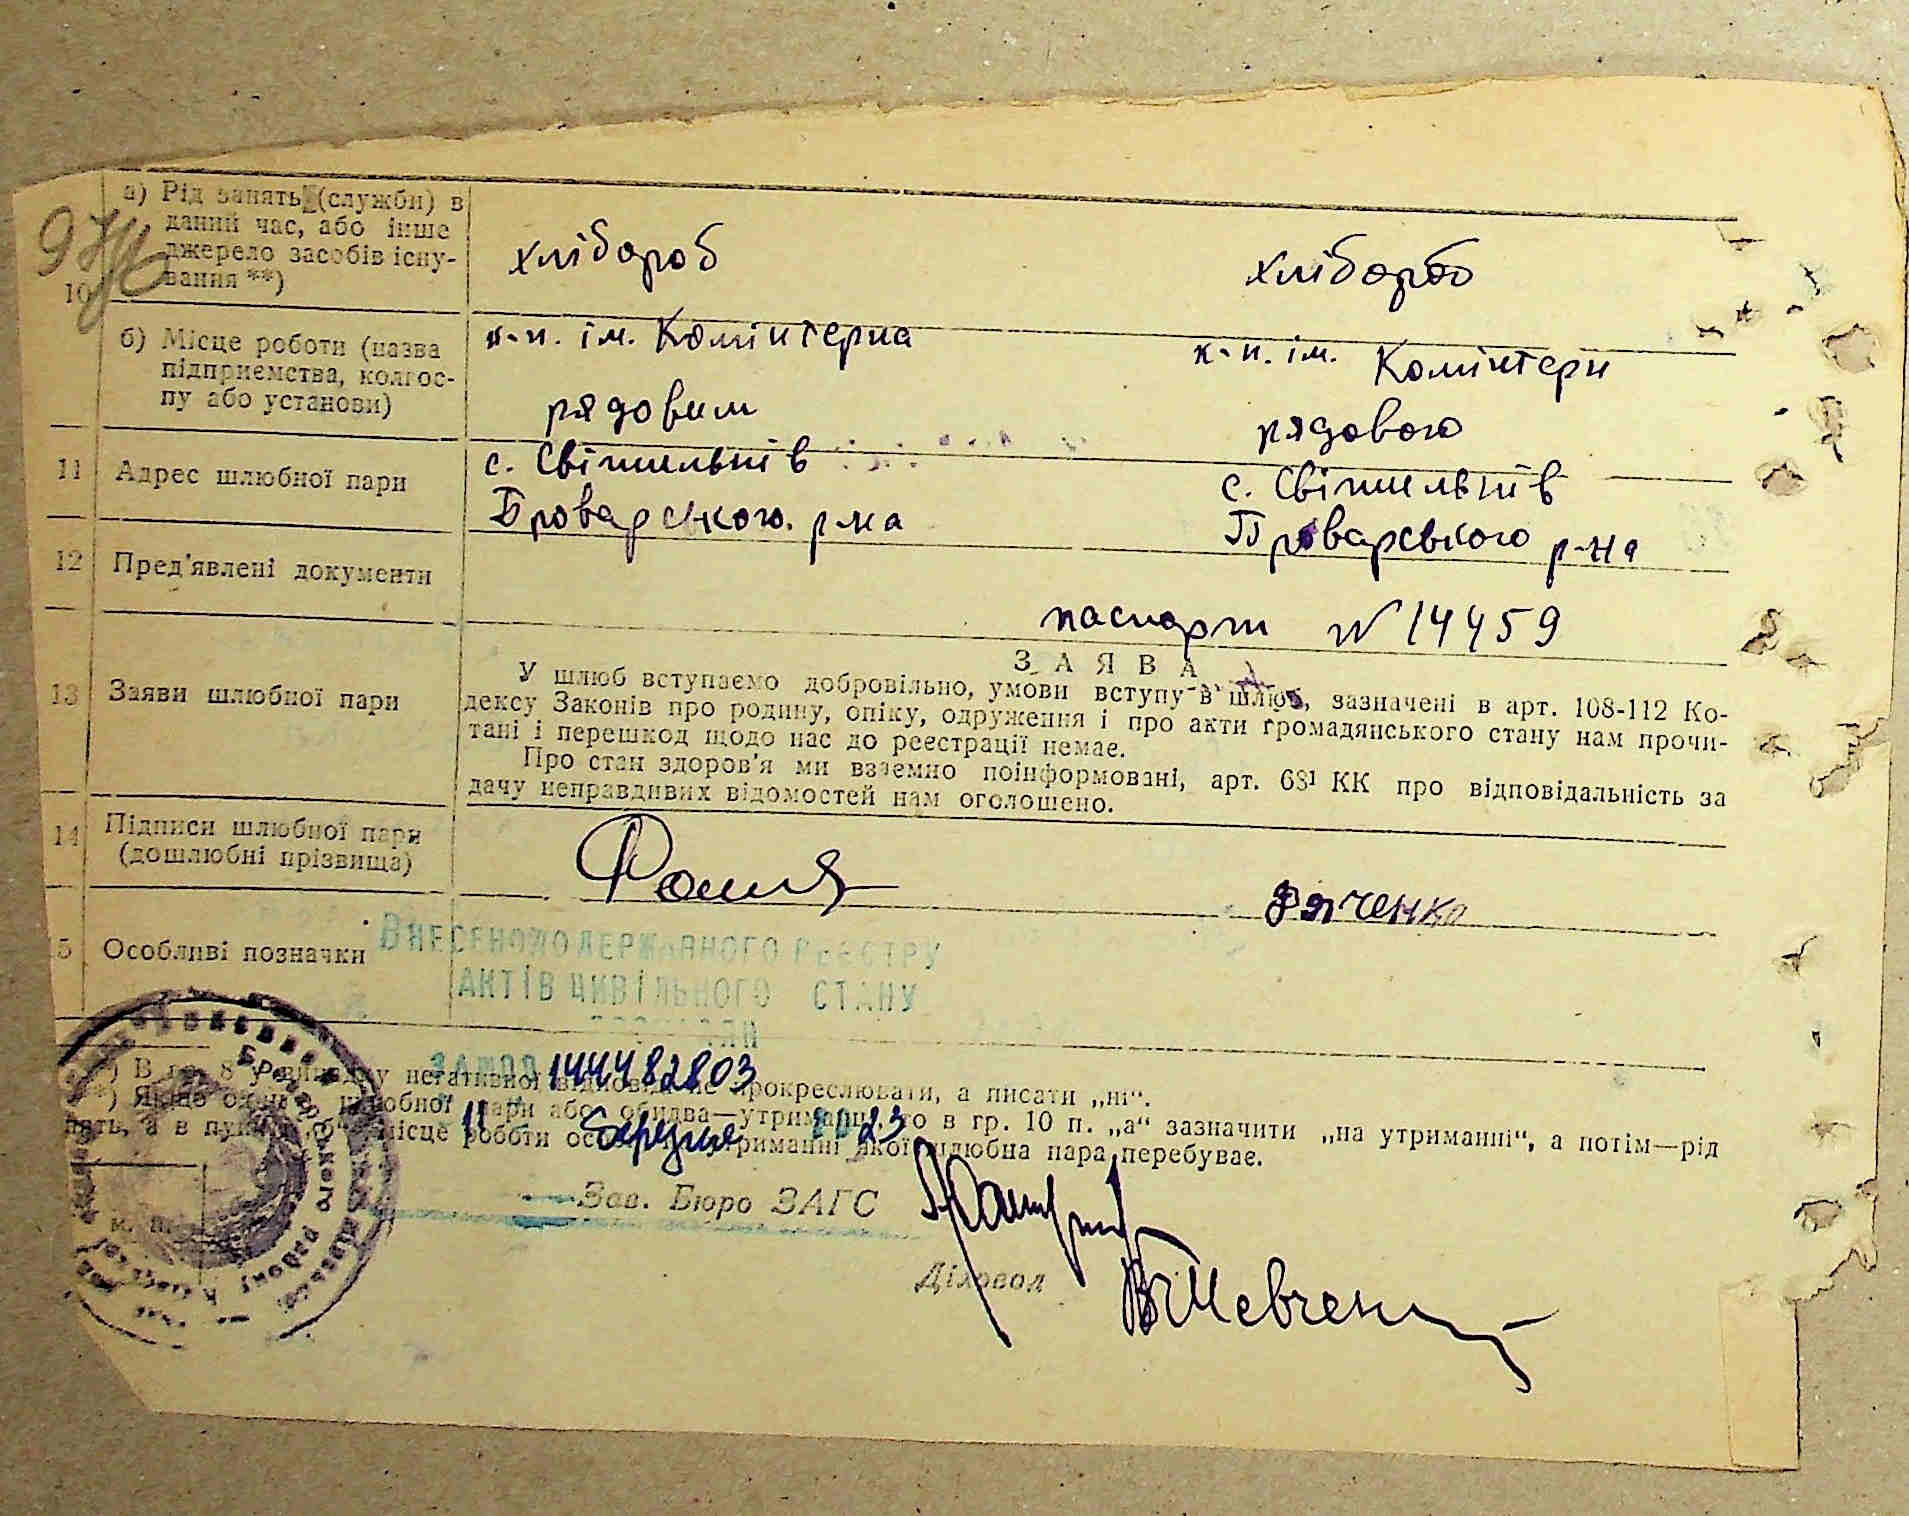 97
10
а) Рід занять (служби) в
даний час, або інше
джерело засобів існу-
вання **)
хлібороб
хлібороб
б) Місце роботи (назва
підприємства, колгос-
пу або установи)
к-п. ім. Комінтерна
рядовим
к-п. ім. Комінтерн
рядовою
11
Адрес шлюбної пари
с. Світильнів
Броварського р-на
с. Світильнів
Броварського р-на
12
Пред'явлені документи
паспорт № 14459
13
Заяви шлюбної пари
ЗАЯВА
У шлюб вступаємо добровільно, умови вступу в шлюб, зазначені в арт. 108-112 Ко-
дексу Законів про родину, опіку, одруження і про акти громадянського стану нам прочи-
тані і перешкод щодо нас до реєстрації немає.
Про стан здоров'я ми взаємно поінформовані, арт. 68¹ КК про відповідальність за
дачу неправдивих відомостей нам оголошено.
14
Підписи шлюбної пари
(дошлюбні прізвища)
5
Особливі позначки
ВНЕСЕНО ДО ДЕРЖАВНОГО РЕЄСТРУ
АКТІВ ЦИВІЛЬНОГО СТАНУ
ГРОМАДЯН
ЗА №00 144482803
11 березня 2023
*) В гр. 8 у випадку негативної відповіді не прокреслювати, а писати „ні“.
**) Якщо один з шлюбної пари або обидва—утриманці, то в гр. 10 п. „а“ зазначити „на утриманні“, а потім—рід
нять, а в пункті „б“ місце роботи особи, на утриманні якої шлюбна пара перебуває.
Зав. Бюро ЗАГС
Діловод
Шевчен
м. п.
Броварського району